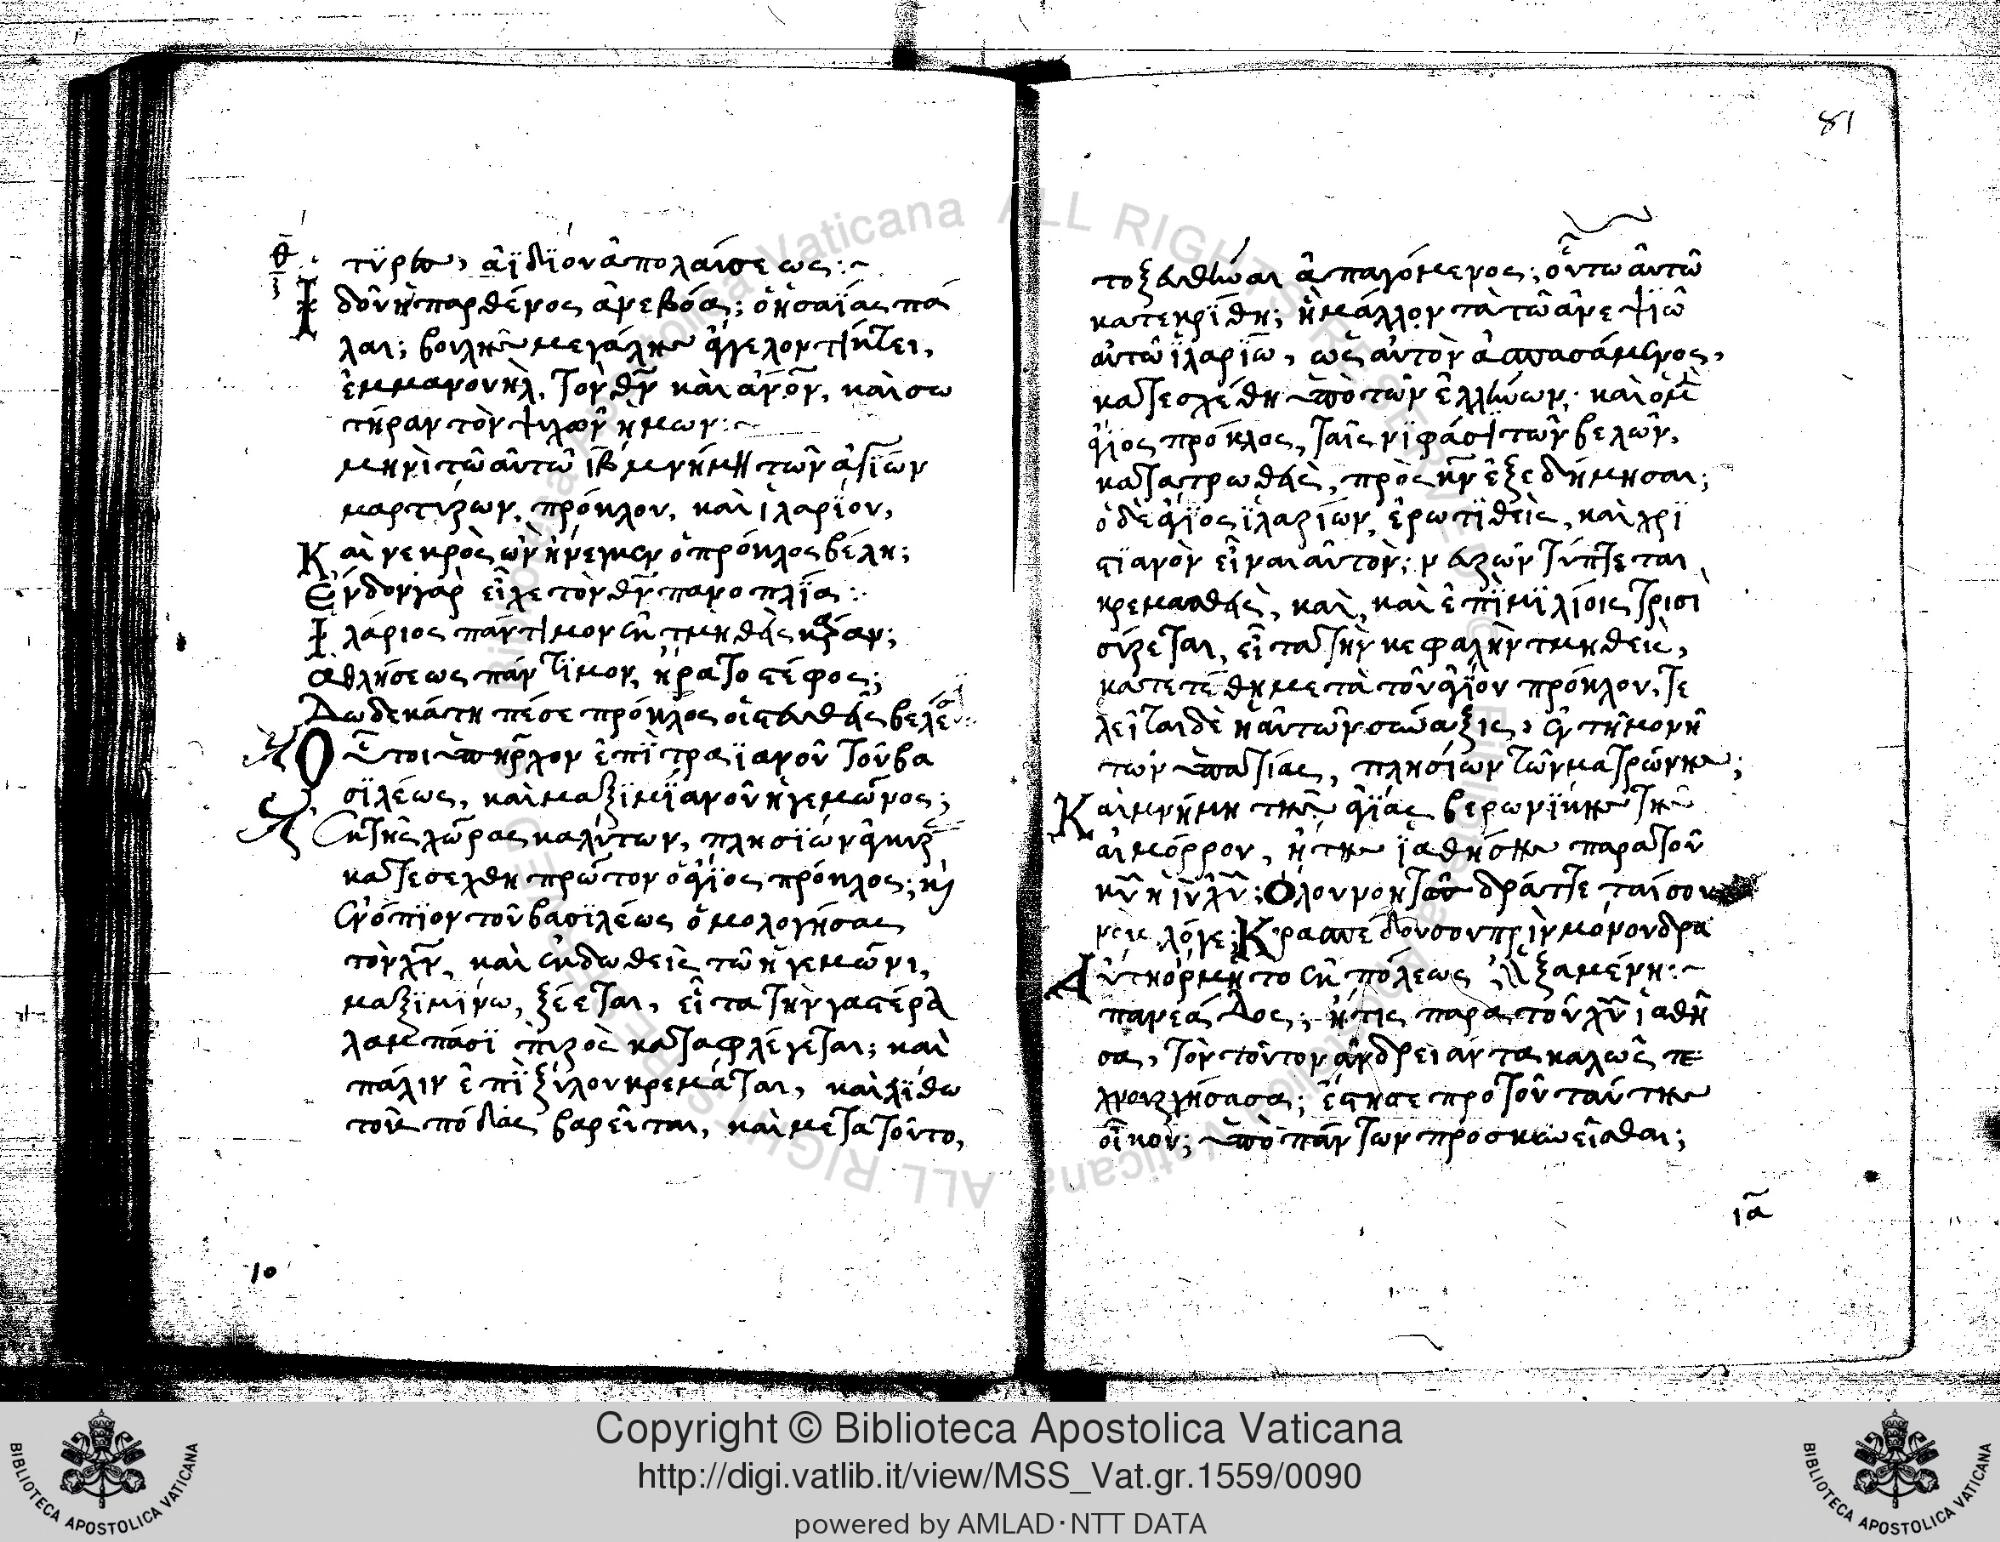 τύρων, ἀϊδΐου ἀπολαύσεως:~
Ἰδοῦ ἡ παρθένος ἀνεβόα; ὁ ἡσαΐας πά
λαι; βουλῆς μεγάλης ἄγγελον τίκτει,
ἐμμανουὴλ, τὸν θν καὶ ἀνον, καὶ σω
τῆραν τὸν ψυχῶν ἡμων:~
μηνὶ τῶ αὐτῶ ιβ μνήμη τῶν ἁγίων
μαρτύρων, πρόκλου, καὶ ἱλαρίου,
Καὶ νεκρὸς ὢν ἤνεγκεν ὁ πρόκλος βέλη;
Ένδον γὰρ εἷλε τὸν θν πανοπλΐα:
Ιλάριος παντίμου ἐκτμηθεὶς κάραν;
ἀθλήσεως πάντϊμον, ἤρατο στέφος;
Δωδεκάτη πέσε πρόκλος οἰστευθεὶς βελέ
Οὗτοι ὑπῆρχον ἐπῒ τραϊανοῦ τοῦ βα
σϊλέως, καὶ μαξϊμϊανοῦ ἡγεμῶνος;
ἐκ τῆς χώρας καλύτων, πλησϊών ἀγκυρ
κατεσχέθη πρῶτον ὁ ἅγϊος πρόκλος; κὶ
ἐνόπϊον τοῦ βασϊλέως ὁμολογήσας
τὸν χν, καὶ ἐκδωθεὶς τῶ ἡγεμῶνι,
μαξϊμϊνω, ξέεται, εἶτα τὴν γαστέρα
λαμπάσϊ πυρὸς καταφλέγεται; καὶ
πάλιν ἐπῒ ξύλου κρεμάται, καὶ λϊθω
τοῦς πόδας βαρεῖται, καὶ μετα τοῦτο,
10
81
τοξευθῆναι ἀπαγόμενος; οὕτω αὐτῶ
κατεκρίθη; ἢ μάλλον τὰ τῶ ἀνεψϊῶ
αὐτῶ ἱλαρίω, ὡς αὐτὸν ἀσπασάμενος,
κατεσχέθη ὑπὸ τῶν ἑλλήνων· καὶ ὁ μὲ
ἅγϊος πρόκλος, ταῖς νϊφάσι τῶν βελῶν,
καταστρωθεὶς, πρὸς κν ἐξεδήμησαι;
ὁ δὲ ἅγϊος ϊλαρίων, ἐρωτϊθεὶς, καὶ χρι
στϊανὸν εἶναι αὐτὸν; νευρῶν τύπτεται
κρεμασθεὶς, καὶ, καὶ ἐπῒ μϊλίοις τρισὶ
σύρεται, εἶτα τὴν κεφαλὴν τμηθεὶς,
κατετέθη μετὰ τοῦ ἁγΐου πρόκλου, τε
λεῖται δὲ ἡ αὐτῶν σύναξις, ἐν τῆ μονῆ
τῶν ὑπατίας, πλησίων τῶν ματρώνης;
Καὶ μνήμη τῆς ἁγΐας βερωνϊκης τῆς
αἱμόρρου, ἥτης ϊαθήσης παρα τοῦ
κυ ἡ ιυ χυ; Ολον νοητῶς δράττεται σου
λόγε; Κρασπέδου σου πρὶν μόνον δρα
Αὕτη ὅρμητο ἐκ πόλεως
πανεάδος, ἥτις παρα τοῦ χυ ἰαθῆ
σα, τὸν τούτου ἀνδρείαντα καλῶς τε
χνουργήσασα; ἔστησε προ τοῦ ταύτης
οἶκου; ὑπὸ πάντων προσκυνεῖσθαι;
ια
Copyright © Biblioteca Apostolica Vaticana
http://digi.vatlib.it/view/MSS_Vat.gr.1559/0090
powered by AMLAD·NTT DATA
BIBLIOTECA APOSTOLICA VATICANA
BIBLIOTECA APOSTOLICA VATICANA